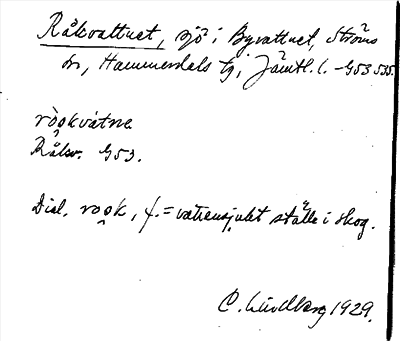 Råkvattnet, sjö i Byvattnet, Ströms
sn, Hammerdals tg, Jämtl. l. - G53 535.
ròǫkvátnᴇ
Råkv. G53.
Dial. roǫk, f. = vattensjukt ställe i skog.
C. Lindberg 1929.